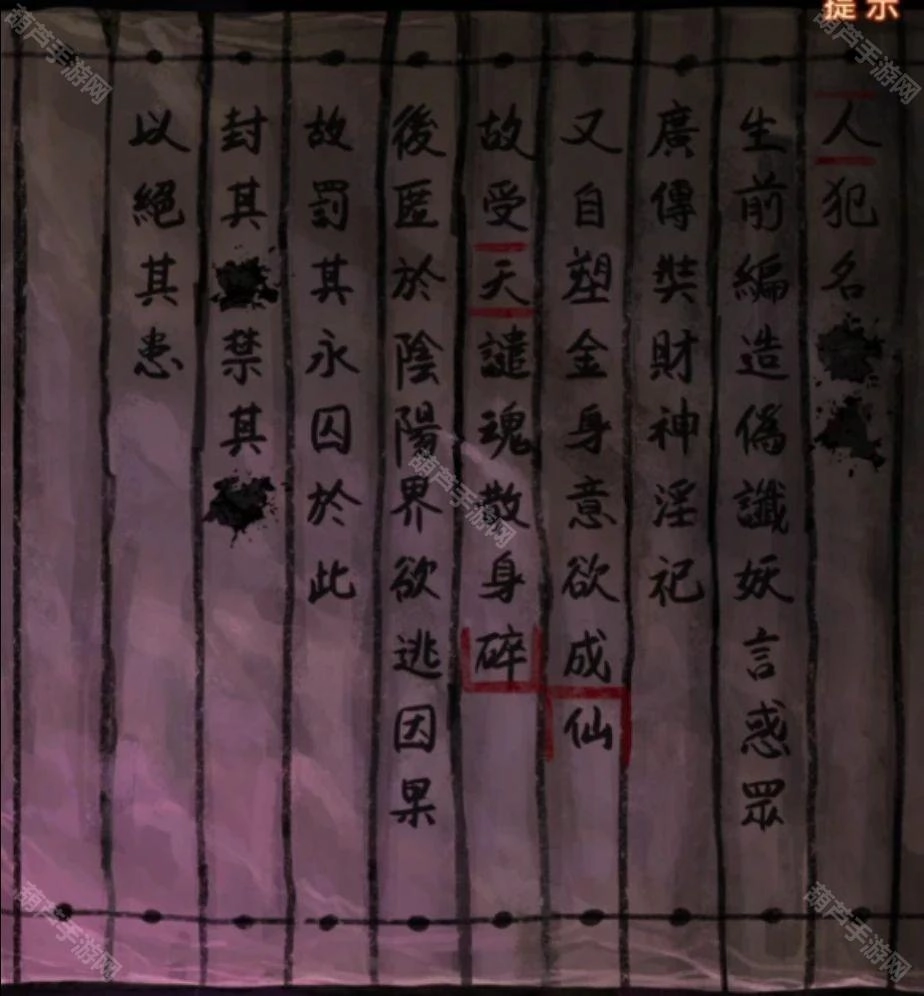 提示
人犯名
生前編造偽讖妖言惑眾
廣傳奘財神淫祀
又自塑金身意欲成仙
故受天譴魂散身碎
後匿於陰陽界欲逃因果
故罰其永囚於此
封其禁其
以絕其患
葫芦手游网
葫芦手游网
葫芦手游网
葫芦手游网
葫芦手游网